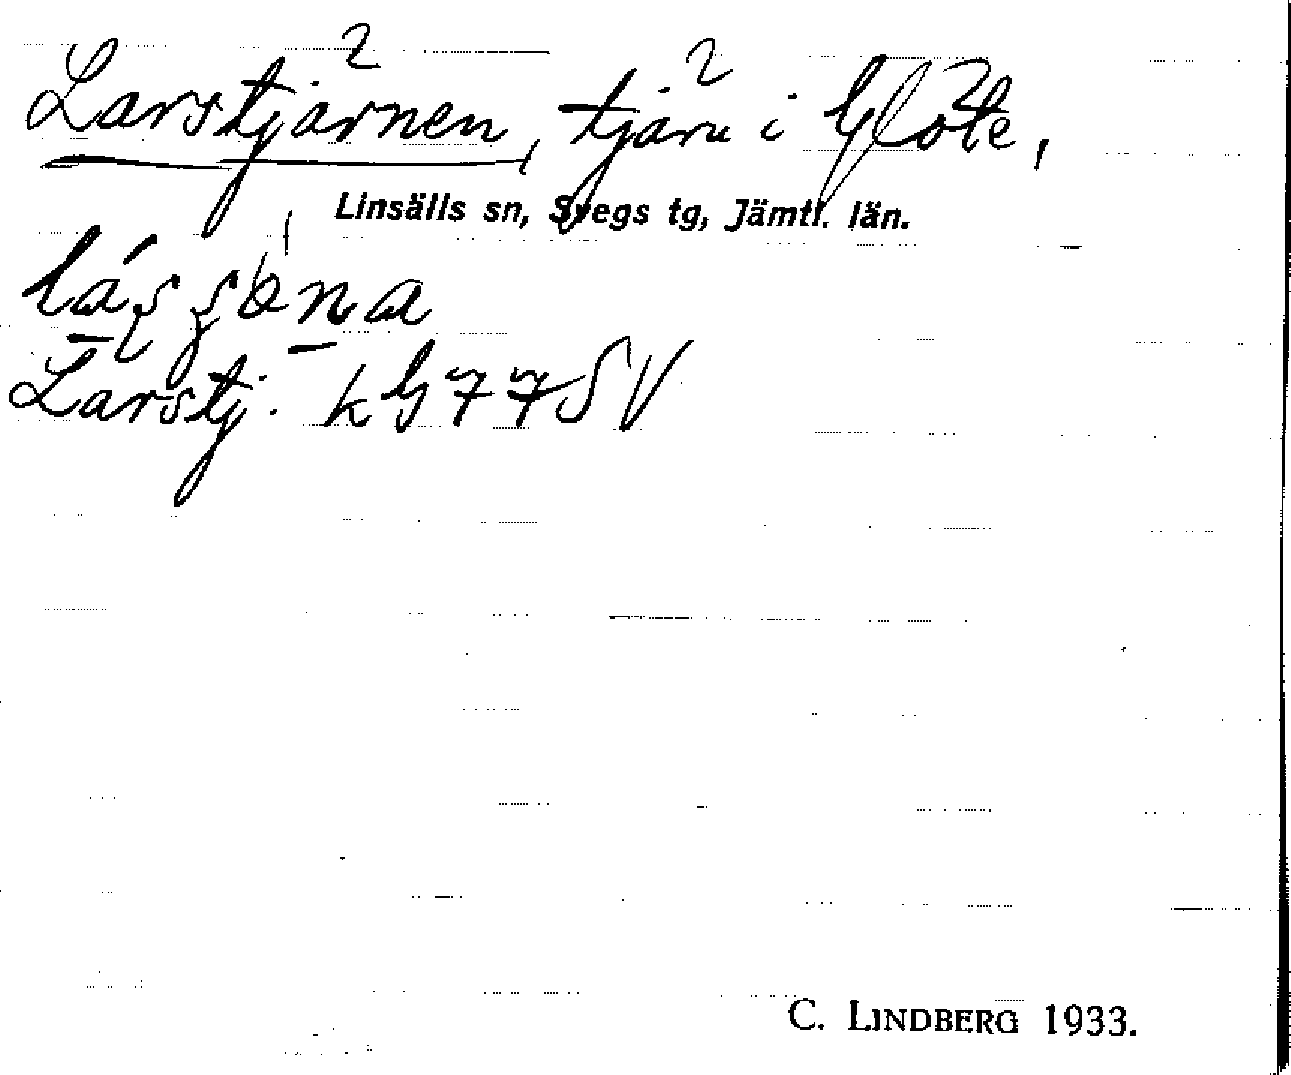 Larstjärnen, tjärn i Glöte,
Linsälls sn, Svegs tg, Jämtl. län.
Larstj. k G 77 SV
C. LINDBERG 1933.